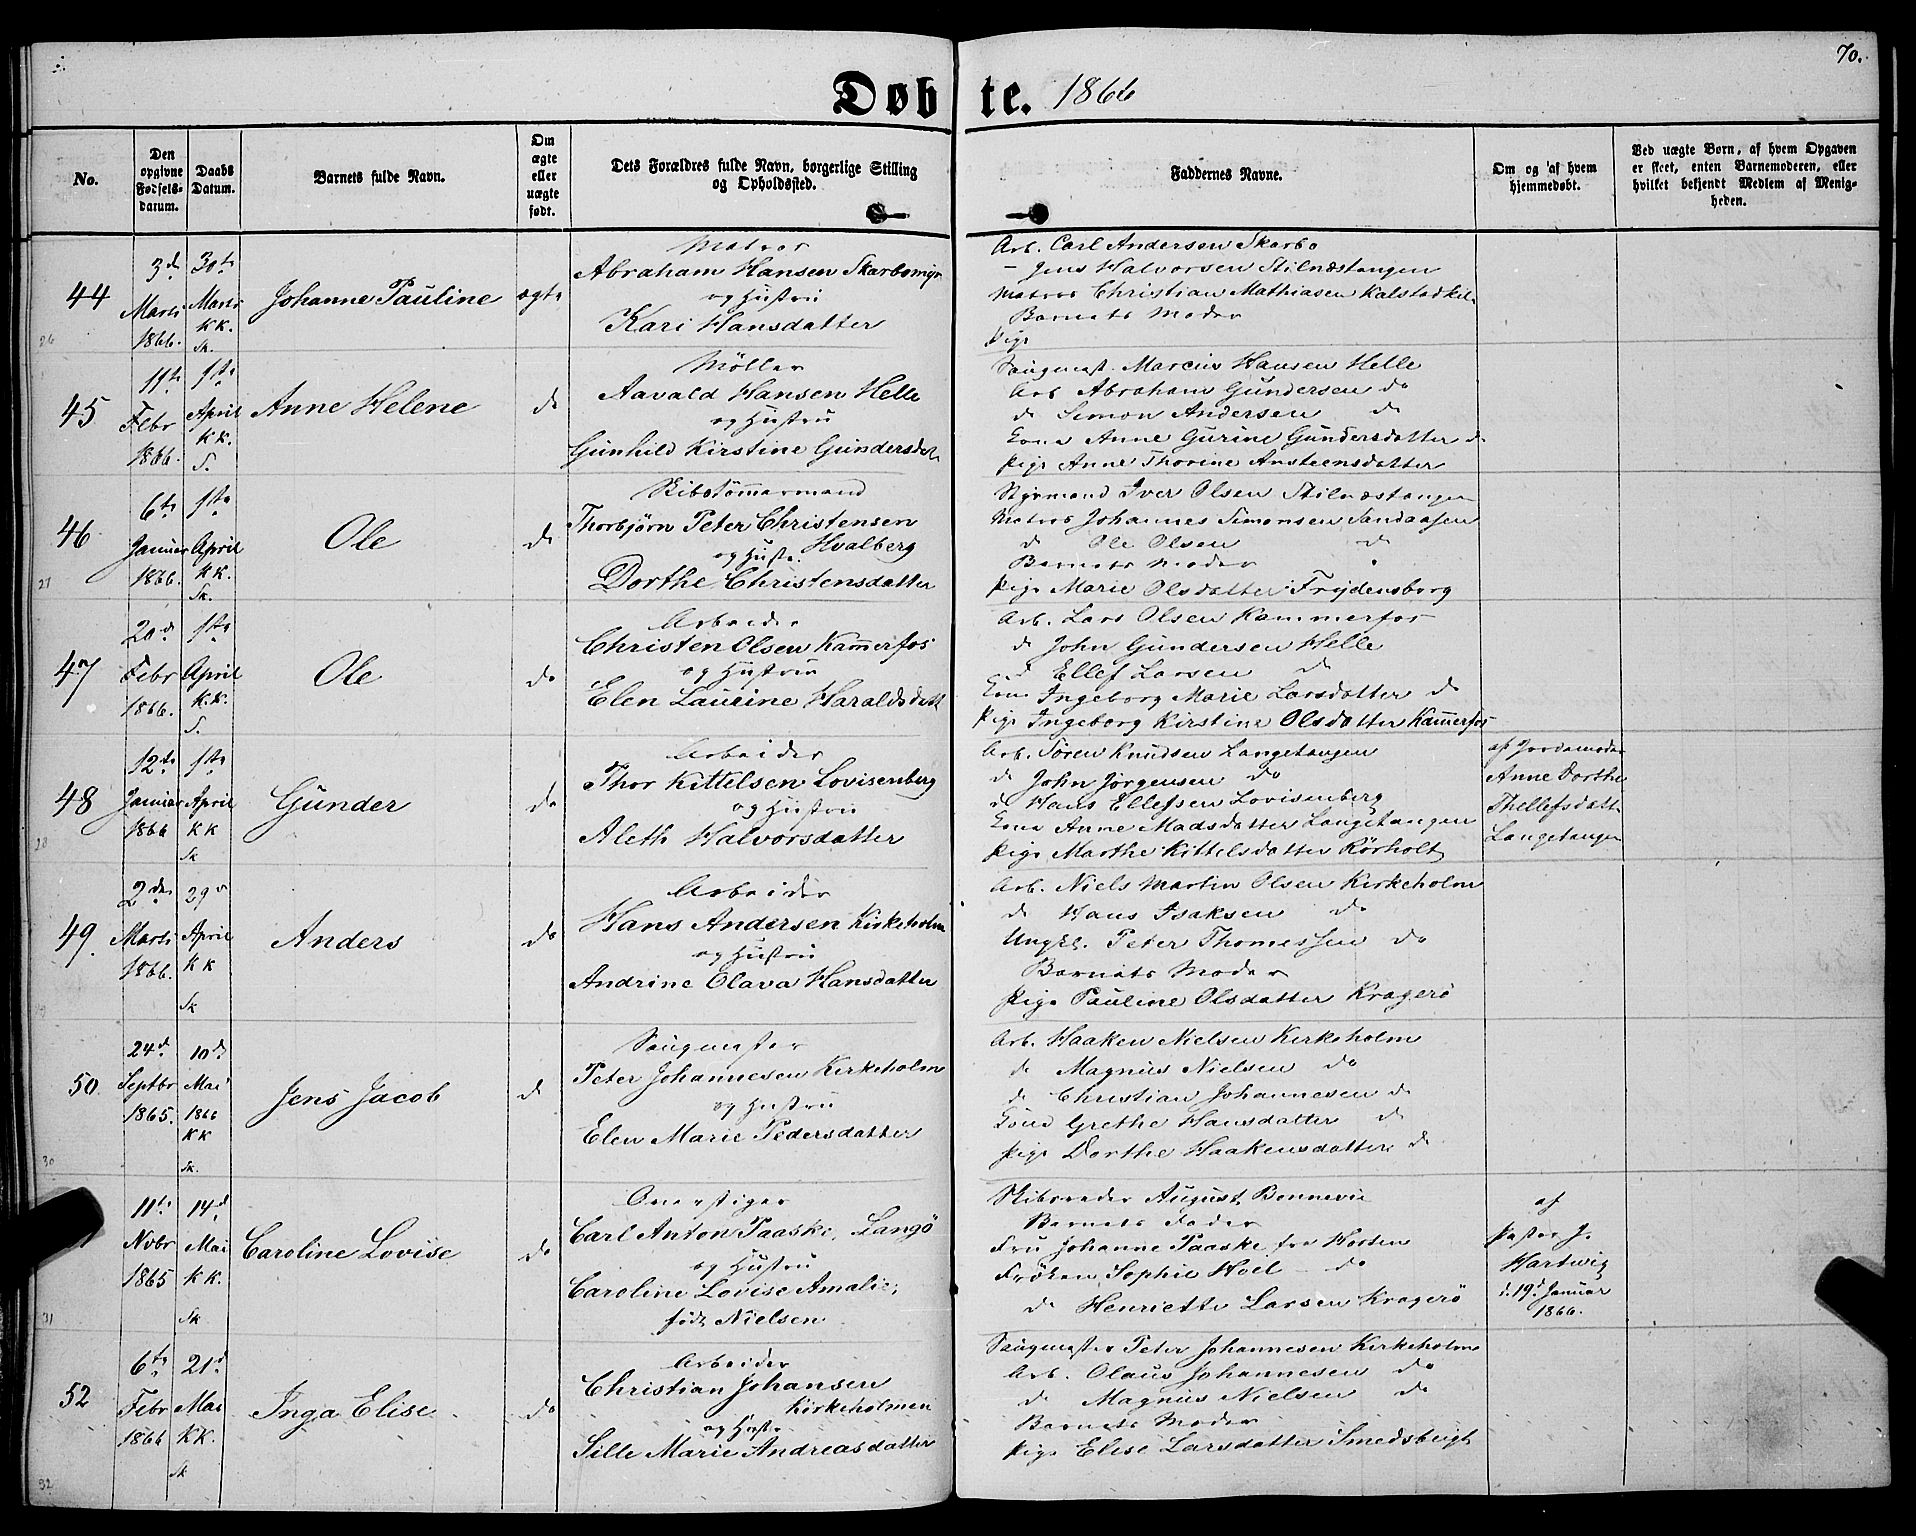 70.
Døbte. 1866
No.
Den opgivne Fødsels-datum.
Daabs Datum.
Barnets fulde Navn.
Om ægte eller uægte født.
Dets Forældres fulde Navn, borgerlige Stilling og Opholdssted.
Faddernes Navne.
Om og af hvem hjemmedøbt.
Ved uægte Børn, af hvem Opgaven er skeet, enten Barnemoderen, eller hvilket bekjendt Medlem af Menigheden.
44
3d Marts 1866.
30te Marts KK. Sk.
Johanne Pauline
ægte
Matros
Abraham Hansen Skarbomyr
og Hustru
Kari Hansdatter
Arb. Carl Andersen Skarbo
— Jens Halvorsen Stilnæstangen
Matros Christian Mathiasen Kalstadkil
Barnets Moder
Pige
26
45
11te Febr 1866.
1ste April KK. S.
Anne Helene
do
Møller
Aavald Hansen Helle
og Hustru
Gunhild Kirstine Gundersdat
Saugmest. Marcus Hansen Helle
Arb Abraham Gundersen do
do Simon Andersen do
Kone Anne Gurine Gundersdatter do
Pige Anne Thorine Ansteensdatter
46
6te Januar 1866.
1ste April KK. Sk.
Ole
do
Skibstømmermand
Thorbjørn Peter Christensen
Hvalberg
og Hust.
Dorthe Christensdatter
Styrmand Iver Olsen Stilnæstangen
Matros Johannes Simonsen Sandaasen
do Ole Olsen do
Barnets Moder
Pige Marie Olsdatter Frydensborg
27
47
20d Febr 1866.
1ste April K.K. S.
Ole
do
Arbeider
Christen Olsen Kammerfos
og Hustru
Elen Laurine Haraldsdatt
Arb. Lars Olsen Kammerfos
do John Gundersen Helle
do Ellef Larsen do
Kone Ingeborg Marie Larsdatter do
Pige Ingeborg Kirstine Olsdatter Kammerfos
48
12te Januar 1866
1ste April KK Sk
Gunder
do
Arbeider
Thor Kittelsen Lovisenberg
og Hustru
Aleth Halvorsdatter
Arb. Søren Knudsen Langetangen
do John Jørgensen do
do Hans Ellefsen Lovisenberg
Kone Anne Madsdatter Langetangen
Pige Marthe Kittelsdatter Rørholt
af Jordemoder
Anne Dorthe
Thellefsdatt
Langetangen
28
49.
2den Marts 1866.
29de April KK Sk
Anders
do
Arbeider
Hans Andersen Kirkeholm
og Hustru
Andrine Olava Hansdatter
Arb. Niels Martin Olsen Kirkeholm
do Hans Isaksen do
Ungk. Peter Thomessen do
Barnets Moder
Pige Pauline Olsdatter Kragerø
50.
24d Septbr 1865.
10d Mai 1866 KK Sk.
Jens Jacob
do
Saugmester
Peter Johannesen Kirkeholm
og Hustru
Elen Marie Pedersdatter
Arb. Haaken Nielsen Kirkeholm
do Magnus Nielsen do
do Christian Johannesen do
Kone Grethe Hansdatter do
Pige Dorthe Haakensdatter do
30
11te Nvbr 1865
14d Mai KK. Sk
Caroline Lovise
do
Carl Anton Paaske, Langø
og Hustru
Caroline Lovise Amalie,
født Nielsen
Skibsreder August Bonnevie
Barnets Fader
Fru Johanne Paaske fra Horten
Frøken Sophie Hoel do
do Henriette Larsen Kragerø
af
Pastor J.
Hartwig
d. 19d Januar
1866.
31
52
6te Febr 1866
21d Mai KK. Sk
Inga Elise
do
Arbeider
Christian Johansen
Kirkeholmen
og Hust.
Sille Marie Andreasdatter
Saugmester Peter Johannesen Kirkeholm
Arb. Olaus Johannesen do
do Magnus Nielsen do
Barnets Moder
Pige Elise Larsdatter Smedsbugt
32